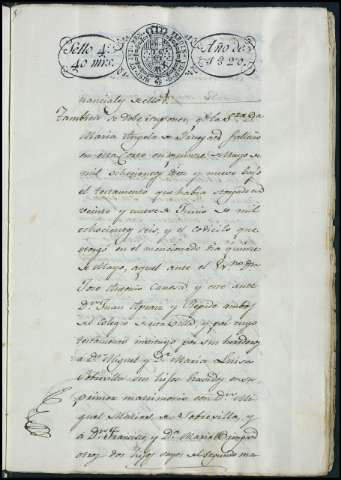 Sello 4.º
40 mrs.
Año de
1820.
Tambien se debe exponer, q.e la S.ra D.a
Maria
en esta Corte en quince de Mayo de
mil ochocientos diez y nueve bajo
el testamento que habia otorgado en
veinte y nueve de Junio de mil
ochocientos seis, y el codicilo que
otorgó en el mencionado dia quince
de Mayo, aquel ante el Es.no D.n
Jose Antonio Canosa y este ante
D.n Juan y ambos
del Colegio de esta Corte, y por cuyo
testamento instituyó por sus herederos
a D.n Miguel y D.a Maria Luisa
Sobrevilla sus hijos havidos en su
primer matrimonio con D.n Mi-
guel Matias de Sobrevilla, y
a D.n Francisco y D.a Maria
otros dos hijos suyos del segundo ma-